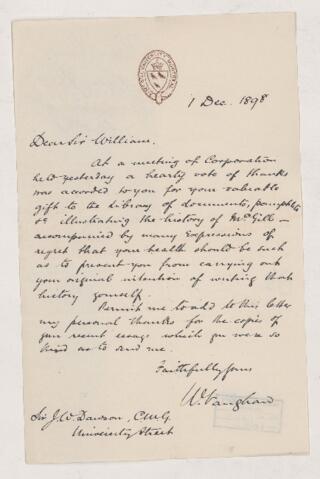 1 Dec. 1898
Dear Sir William,
At a meeting of Corporation
held yesterday a hearty vote of thanks
was accorded to you for your valuable
gift to the Library of documents, pamphlets
&c illustrating the history of McGill —
accompanied by many expressions of
regret that your health should be such
as to prevent you from carrying out
your original intention of writing that
history yourself.
Permit me to add to this letter
my personal thanks for the copies of
your recent essays which you were so
kind as to send me.
Faithfully yours
W. Vaughan
Sir J. W. Dawson, C.M.G.
University Street